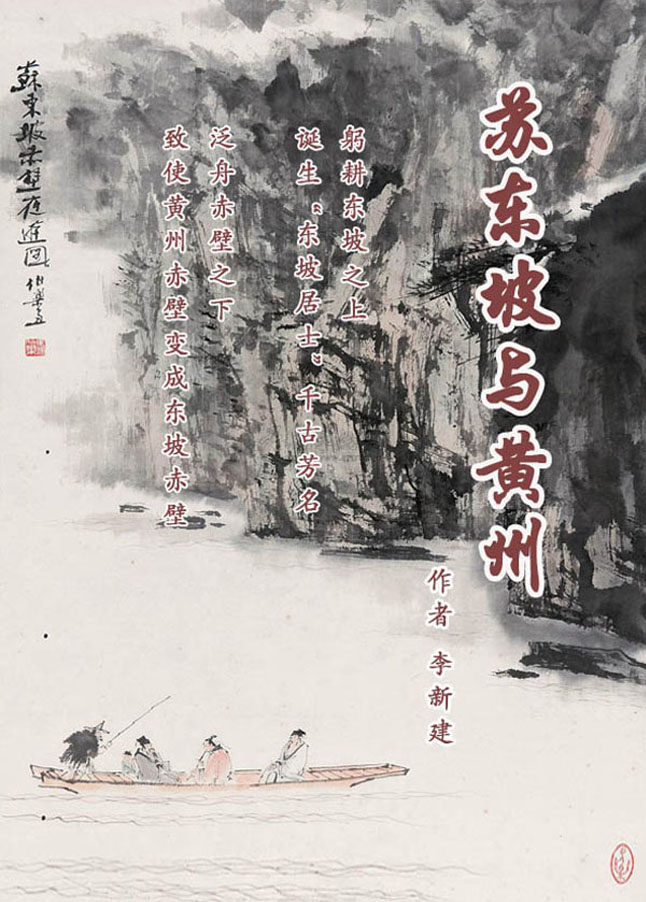 苏东坡与黄州
作者 李新建
躬耕东坡之上
诞生“东坡居士”千古芳名
泛舟赤壁之下
致使黄州赤壁变成东坡赤壁
蘇東坡赤壁夜遊图